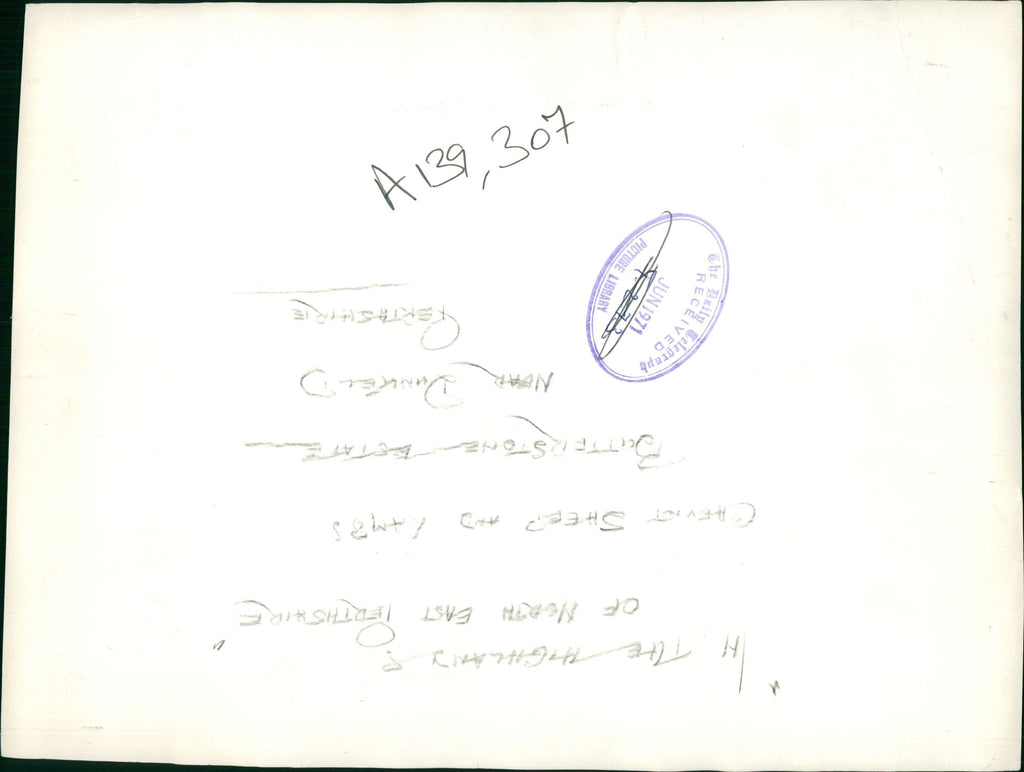 A139,307
"IN THE HIGHLANDS
OF NORTH EAST PERTHSHIRE"
CHEVIOT SHEEP AND LAMBS
BUTTERSTONE ESTATE
NEAR DUNKELD
PERTHSHIRE
The Daily Telegraph
RECEIVED
JUN 1971
PICTURE LIBRARY